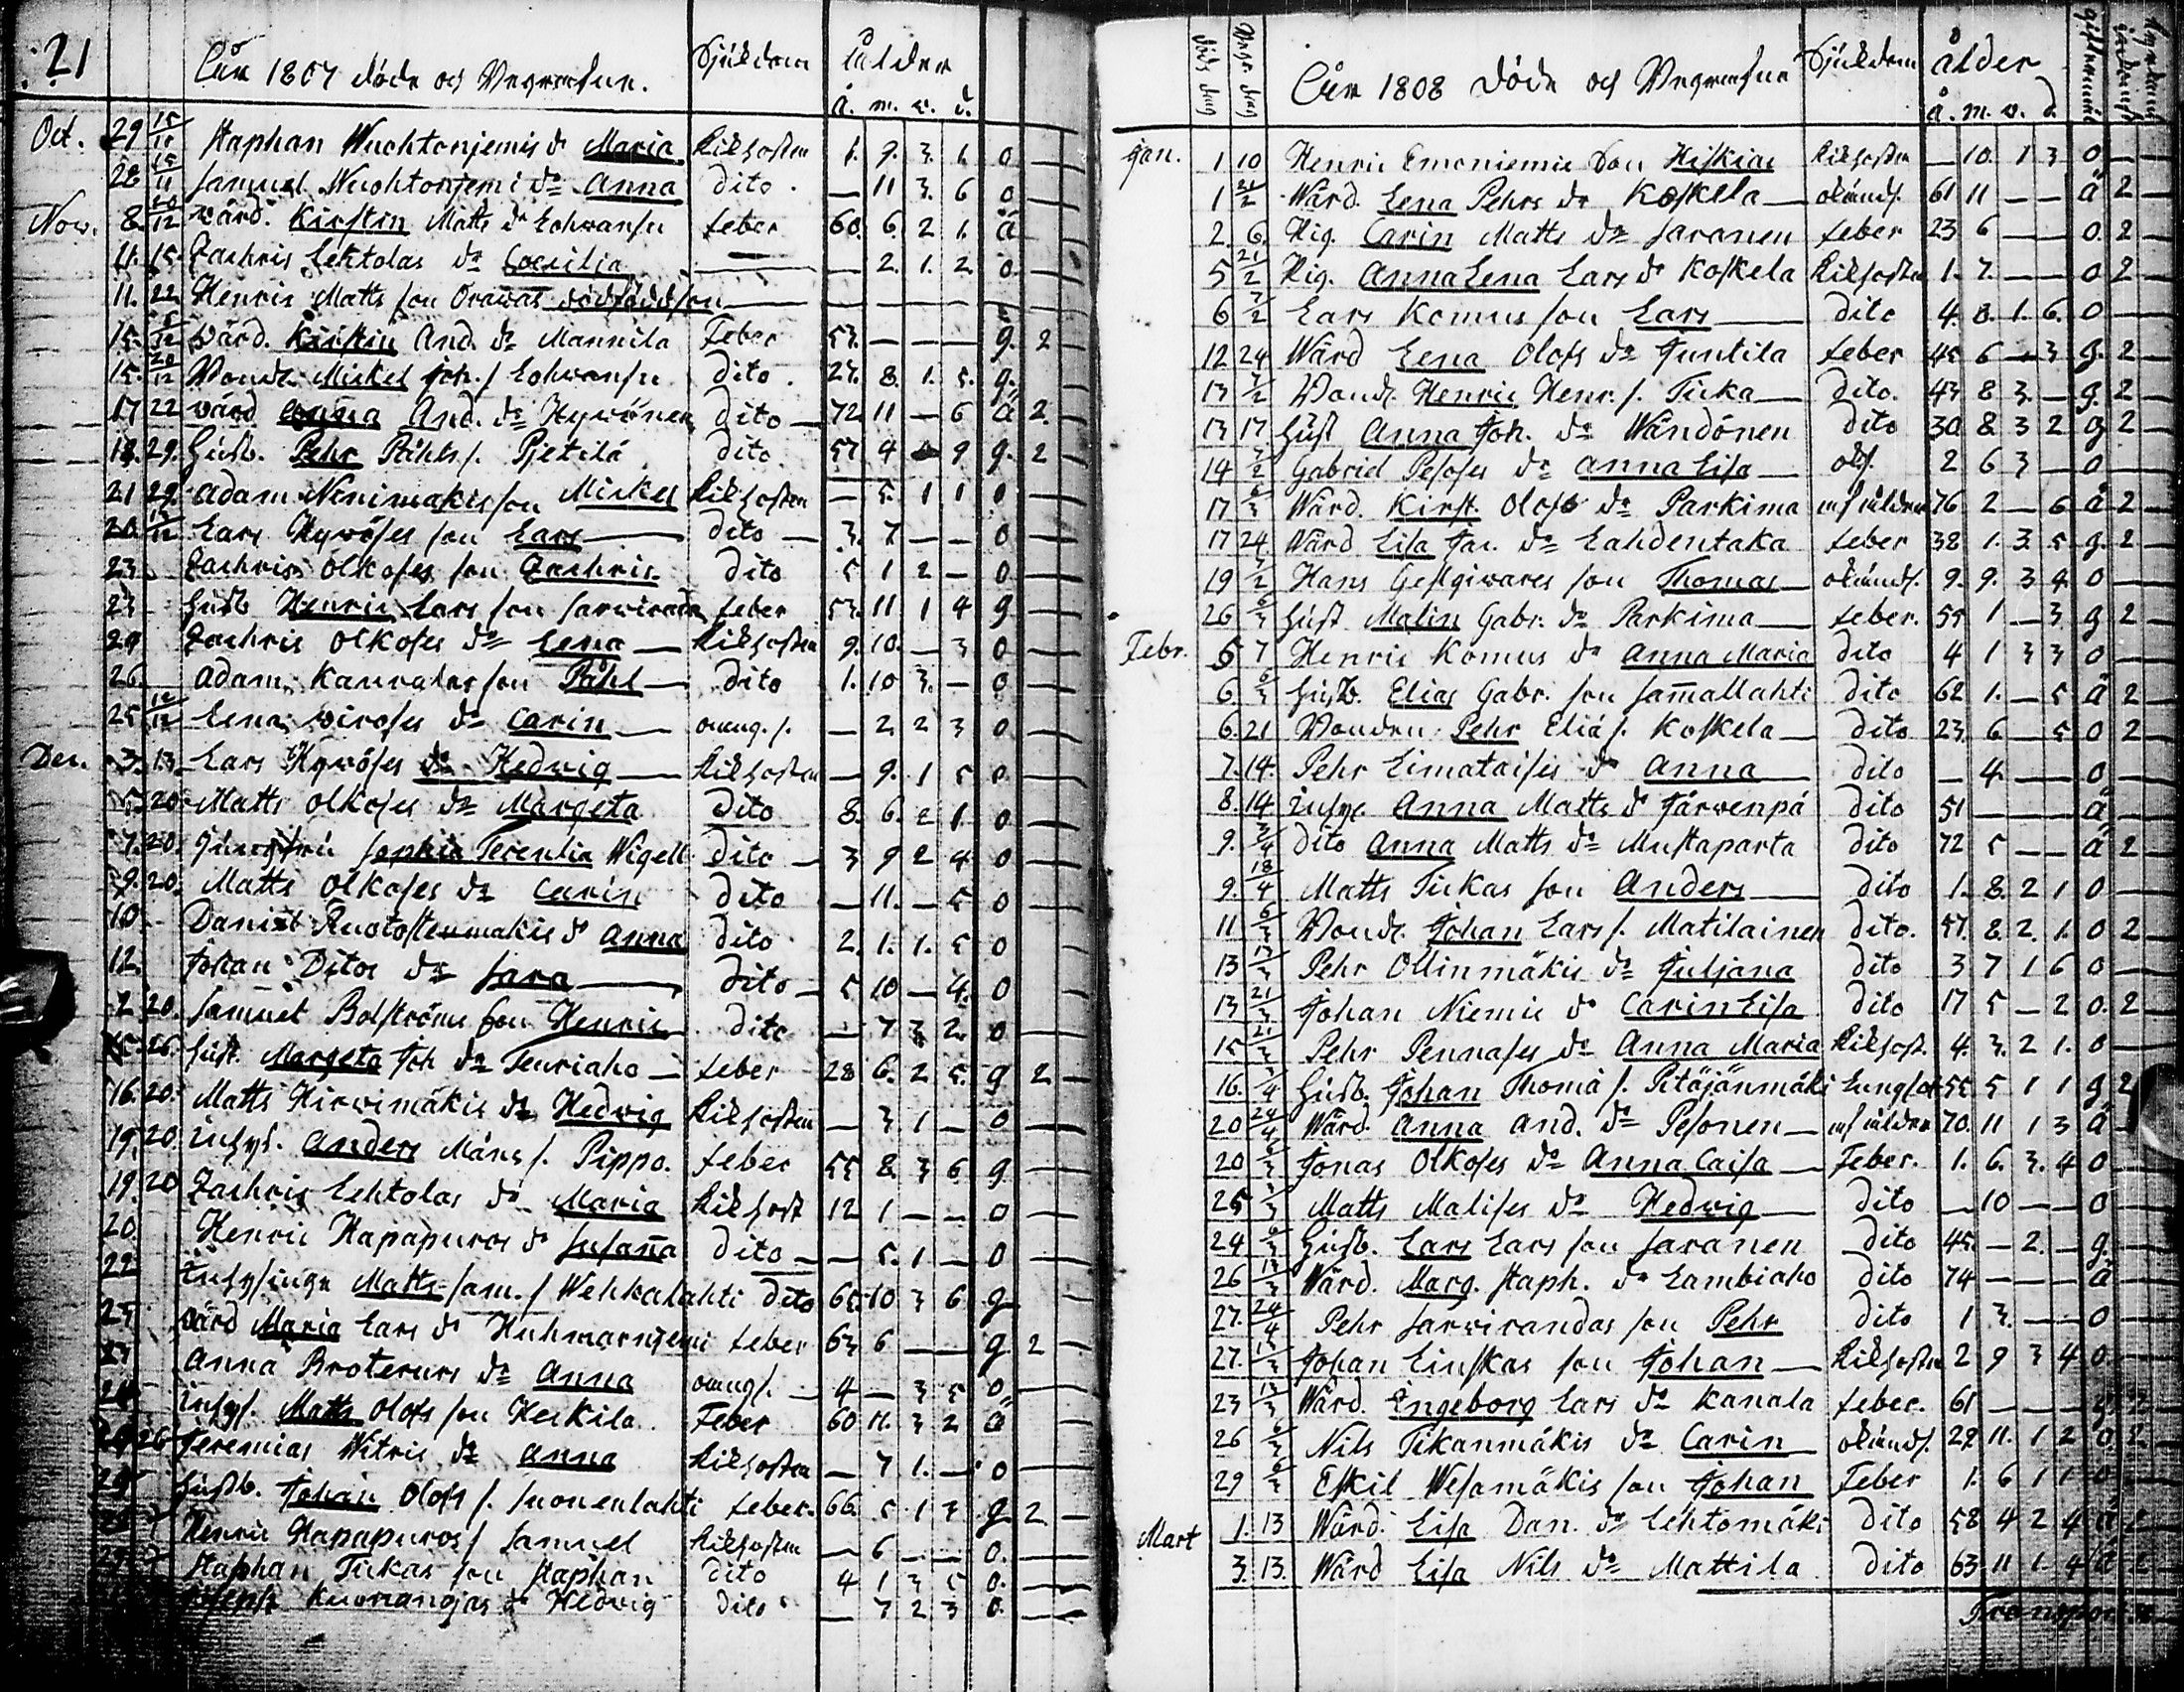 21
År 1807 döde och Begrafne. Sjukdom ålder
å. m. v. d.
Oct. 29 15/11 Staphan Nuohtonjemis dr Maria Kikhostan 1. 9. 3. 1. o —
28 15/11 Samuel Nuohtonjemi dr Anna dito — 11 3. 6 o —
Nov. 8 20/12 värd. Kirstin Matts dr Lohvansu feber 60. 6. 2 1. ä —
11. 15. Zachris Lehtolas dr Cecilia — — 2. 1. 2 o —
11. 22 Henric Matts son Orawas dödfödd son —
15. Värd. Kirstin And. dr Mannila Feber 53. — — — g. 2 —
15. 20/12 Bonde Mickel Joh. s. Lohvansu dito. 27. 8. 1. 5. g. —
17 22 värd Anna And. dr Hyvönen dito — 72 11 — 6 ä 2.
18. 29. Husb. Pehr Påhls s. Pjetilä dito. 57 4 9 g. 2 —
21 29. Adam Nenimakis son Mickel Kikhostan — 5. 1 1 o —
20. Lars Hyvöses son Lars — dito — 3. 7 — — o —
23. Zachris Olkoses son Zachris dito 5 1 2 — o —
23 Husb Henric Lars son Sarviranda feber 53. 11 1 4 g —
24 Zachris Olkoses dr Lena — Kikhostan 9. 10. — 3 o —
26. Adam son Påhl — dito 1. 10 3. — o —
25 Lena Wiroses dr Carin — — 2 2 3 o —
Dec. 3. 13. Lars Hyvöses dr Hedvig — Kikhostan — 9. 1 5 o —
5 20. Matts Olkoses dr Margeta dito 8. 6. 2 1. o —
7. 20. Jungfru Sophia Terentia Wigell dito — 3 9 2 4 o —
9. 20. Matts Olkoses dr Carin dito — 11. — 5 o —
10 Daniel Ruotostenmakis dr Anna dito 2. 1. 1. 5 o —
12. Johan Ditos dr Sara — dito — 5 10 — 4. o —
2 20. Samuel Bolströms son Henric dito — 7 3 2 o —
15. 26. Hust. Margeta Joh dr Tenriaho — feber 28 6. 2 5. g 2 —
16. 20. Matts Hirvimäkis dr Hedvig Kikhostan — 3. 1. — o —
19. 20. inhys. Anders Måns s. Pippo. feber 55 8. 3 6 g —
19. 20 Zachris Lehtolas dr Maria Kikhost 12 1 — — o —
20. Henric Hapapuros dr Susanna dito — — 5. 1 — o —
22 inhysinge Matts Sam. s Wehkalahti dito 65. 10 3 6 g —
23 värd Maria Lars dr Huhmarnjemi feber 63 6 — — g 2 —
23 Anna Broterurs dr Anna — 4 — 3 5 o —
24 inhys. Matts Olofs son Heikila. Feber 60 11. 3 2 ä —
26 Jeremias Witris dr Anna Kikhostan — 7 1. — o —
Husb. Johan Olofs s. Suonenlahti feber. 66. 5 1 3 g 2. —
Henric Hapapuros s Samuel Kikhostan — 6 — — o. —
Staphan Tickas son Staphan dito 4 1 3 5 o. —
Joseph Kuvanojas dr Hedvig dito — 7 2 3 o. —
döds dag Begr. dag År 1808 Döde och Begrafne Sjukdom ålder
å. m. v. d.
Jan. 1 10 Henric Emoniemis son Hiskias Kikhostan — 10. 1 3 o —
1 21/2 Wärd. Lena Pehrs dr Koskela — okänds. 61 11 — — ä 2 —
2. 6. Pig. Carin Matts dr Saranen feber 23 6 — — o. 2 —
5 21/2 Pig. Anna Lena Lars dr Koskela Kikhostan 1. 7. — — o 2 —
6 7/2 Lars Komus son Lars — dito 4. 8. 1. 6. o —
12 24 Wärd Lena Olofs dr Juntila feber 45 6 — 3 g. 2 —
13 7/2 Bonds. Henric Henr. s. Ticka — dito. 43 8 3. — g. 2 —
13 17 Hust Anna Joh. dr Wändönen dito 30. 8 3 2 g 2 —
14 7/2 Gabriel Pesoses dr Anna Lisa — oks. 2 6 3 — o —
17 6/3 Wärd. Kirst. Olofs dr Parkima af ålder 76 2 — 6 ä 2 —
17 24 Wärd Lisa Jac. dr Lahdentaka feber 38 1. 3. 5 g. 2 —
19 7/2 Hans son Thomas — okänds. 9. 9. 3 4. o —
26 6/3 Hust Malin Gabr. dr Parkima — feber. 55 1 — 3 g 2 —
Febr. 5 7 Henric Komus dr Anna Maria dito 4 1 3 3 o —
6. 6/3 Husb. Elias Gabr. son Sammallahti dito 62 1. — 5 ä 2 —
6. 21 Bonden Pehr Elia s. Koskela — dito 23. 6 — 5 o 2 —
7. 14. Pehr Limataises dr Anna — dito — 4. — — o —
8. 14 inhys. Anna Matts dr Järvenpä dito 51 — — — ä —
9. 3/4 dito Anna Matts dr Mustaparta dito 72 5 — — ä 2 —
9. 18/4 Matts Tickas son Anders — dito 1. 8. 2 1 o —
11 6/3 Bonds. Johan Lars s. Matilainen dito. 57. 8. 2. 1. o 2 —
13 13/3 Pehr Ollinmäkis dr Juljana dito 3 7 1 6 o —
13 21/3 Johan Niemis dr Carin Lisa dito 17 5 — 2 o. 2 —
15 21/3 Pehr Pennases dr Anna Maria Kikhost. 4. 3. 2 1. o —
16. 3/4 Husb. Johan Thoma s. Pitäjänmäki Lungsot 55 5 1 1 g 2
20 24/4 Wärd Anna And. dr Pesonen — af ålder 70. 11 1 3 ä —
20 6/3 Jonas Olkoses dr Anna Caisa — Feber. 1. 6. 3. 4 o —
25 Matts Malises dr Hedvig — dito — 10 — — o —
24 6/3 Husb. Lars Lars son Saranen dito 45. — 2. — g. —
26 13/3 Wärd. Marg. Staph. dr Lambiaho dito 74 — — — ä —
27. 24/4 Pehr Sarvirandas son Pehr dito 1 3. — — o —
27. 13/3 Johan Linskas son Johan — Kikhostan 2 9 3 4 o. —
23 13/3 Wärd. Ingeborg Lars dr Kanala feber. 61 — — — 2
26 6/3 Nils Tikanmäkis dr Carin — okänds. 22 11. 1 2 o. 2.
29 6/3 Eskil Wesamäkis son Johan Feber 1. 6 1 1 o —
Mart 1. 13 Wärd. Lisa Dan. dr Lehtomäki dito 58 4 2 4 ä 2
3. 13. Wärd Lisa Nils dr Mattila dito 63 11 1. 4 ä 2
Transport